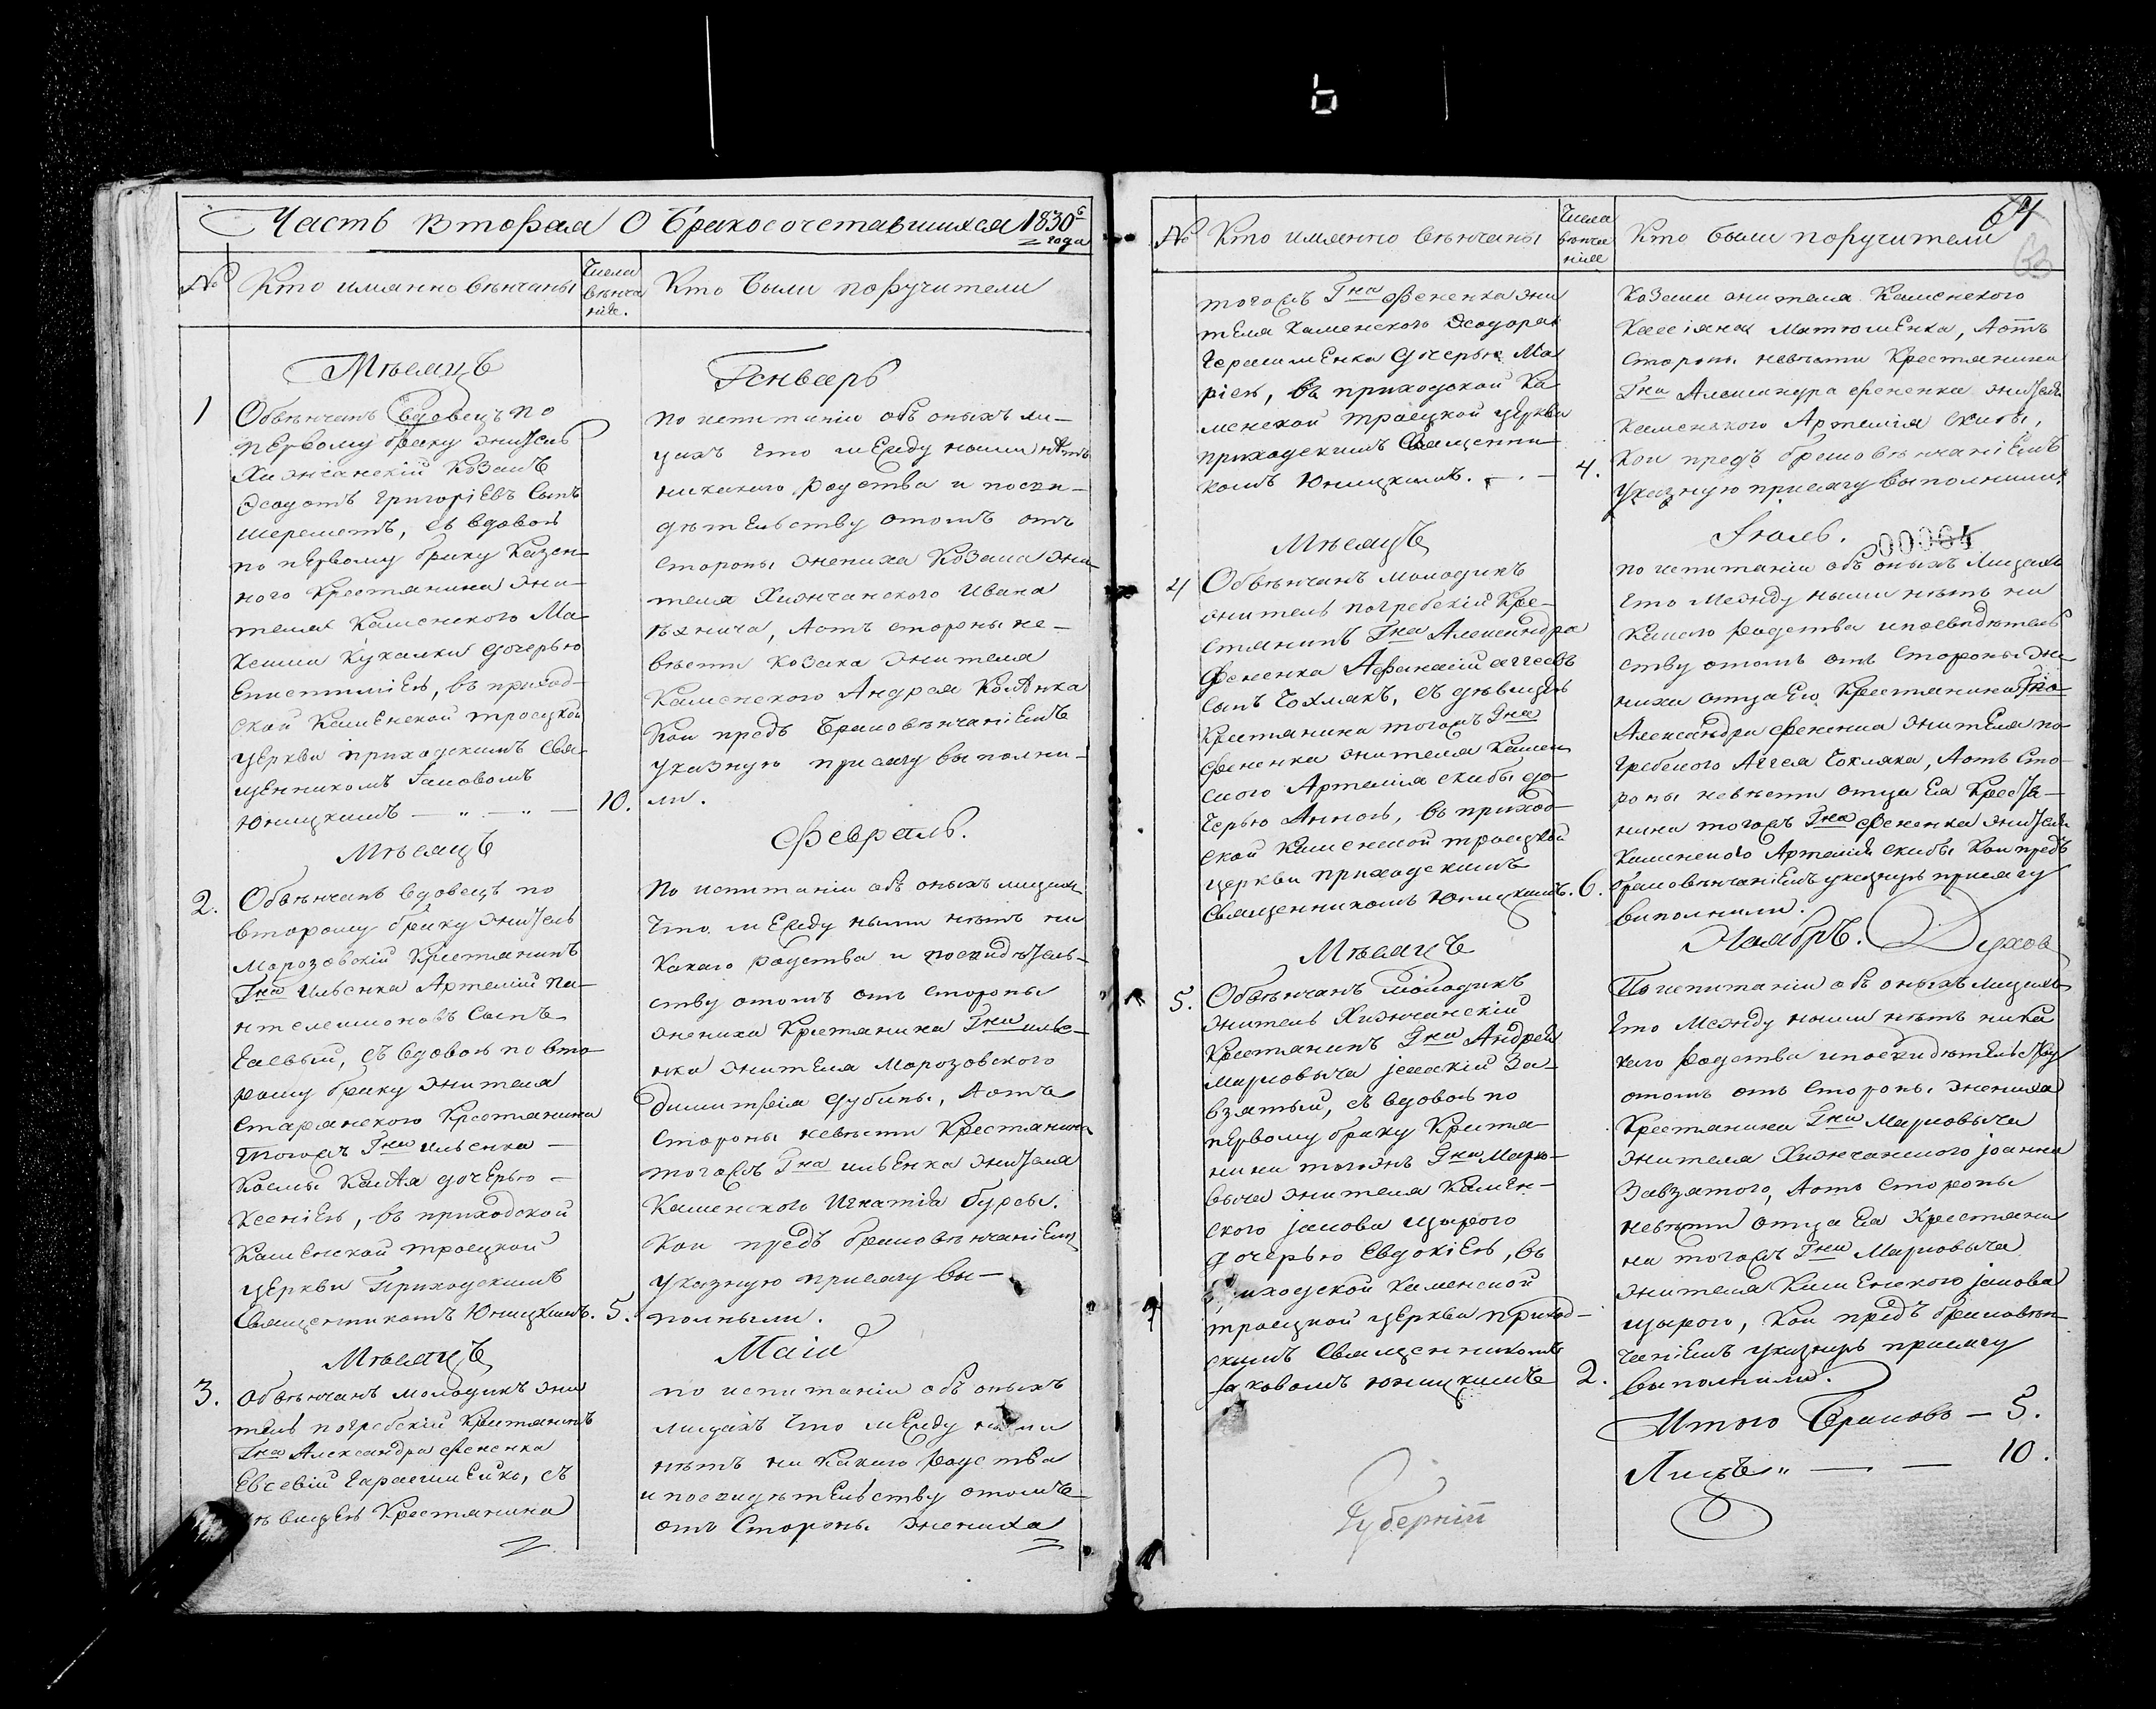 Часть вторая О бракосочетавшихся 1830го года
№ Кто имянно вѣнчаны Числа вѣнчанія. Кто были поручители
Мѣсяцъ Генварь
1 Обвѣнчанъ вдовецъ по
первому браку житель
Хижчанскій козакъ
Ѳеодотъ Григоріевъ сынъ
Шереметъ, съ вдовою
по первому браку казен-
ного крестянина жи-
теля Каменского Ма-
Кукалки дочерью
Епистиміею, въ приход-
ской Каменской троецкой
церкви приходскимъ свя-
щенникомъ Іаковомъ
Юницкимъ — „ — „ — 10.
по испитаніи объ оныхъ ли-
цахъ что между ними нѣтъ
никакого родства и посви-
дѣтельству отомъ отъ
стороны жениха козака жи-
теля Хижчанского Ивана
, аотъ стороны не-
вѣсти козака жителя
Каменского Андрея
Кои предъ браковѣнчаніемъ
указную присягу выполни-
ли.
Мѣсяцъ Февраль.
2. Обвѣнчанъ вдовецъ по
второму браку житель
Морозовскій крестянинъ
Гна Ильенка Артемій Па-
нтелеимоновъ сынъ
Гаевый, съ вдовою по вто-
рому браку жителя
Старянского крестянина
тогожъ Гна Ильенка —
Космы дочерью —
Ксеніею, въ приходской
Каменской троецкой
церкви приходскимъ
священникомъ Юницкимъ. 5.
По испитаніи объ оныхъ лицахъ
что между ними нѣтъ ни
какаго родства и посвидѣтель-
ству отомъ отъ стороны
жениха крестянина Гна Илье-
нка жителя Морозовского
Димитрія Дубины, аотъ
стороны невѣсти крестянина
тогожъ Гна Ильенка жителя
Каменского Игнатія Бурсы.
Кои предъ браковѣнчаніемъ
указную присягу вы-
полныли.
Мѣсяцъ Маій
3. Обвѣнчанъ молодикъ жи
тель погребскій крестянинъ
Гна Александра Фененка
Евсевій Гарасименко, съ
дѣвицею крестянина
по испитаніи объ оныхъ
лицахъ что между ними
нѣтъ ни какаго родства
и посвидѣтельству отомъ
отъ стороны жениха
64
63
№ Кто имянно вѣнчаны Числа вѣнчанія Кто были поручители
тогожъ Гна Фененка жи
теля Каменского Ѳеодора
Герасименка дочерью Ма
ріею, въ приходской Ка
менской троецкой церкви
приходскимъ священни-
комъ Юницкимъ. — . — 4.
козака жителя Каменского
Кассіяна Матюшенка, аотъ
стороны невѣсти крестянина
Гна Александра Фененка жителя
Каменского Артемія Скибы,
кои предъ браковѣнчаніемъ
указную присягу выполнили.
Мѣсяцъ Іюль.
00064
4 Обвѣнчанъ молодикъ
житель погребскій кре-
стянинъ Гна Александра
Фененка Афанасій Аггеевъ
сынъ Гохлякъ, съ дѣвицею
крестянина тогожъ Гна
Фененка жителя Камен
ского Артемія Скибы до-
черью Анною, въ приход-
ской Каменской троецкой
церкви приходскимъ
священникомъ Юницкимъ. 6.
по испитаніи объ оныхъ лицахъ
что между ними нѣтъ ни
какаго родства ипосвидѣтель
ству отомъ отъ стороны же
ниха отца его крестянина Гна
Александра Фененка жителя по-
гребского Аггея Гохляка, аотъ сто-
роны невѣсти отца ея крестя-
нина тогожъ Гна Фененка жителя
Каменского Артемія Скибы кои предъ
браковѣнчаніемъ указную присягу
виполнили.
Мѣсяцъ Ноябръ. Духов
5. Обвѣнчанъ молодикъ
житель Хижчанскій
крестянинъ Гна Андрея
Марковыча За-
взятый, съ вдовою по
первому браку крестя-
нина тогожъ Гна Марко-
выча жителя Камен-
ского Іакова Щирого
дочерью Евдокіею, въ
приходской Каменской
троецкой церкви приход-
скимъ священникомъ
Іаковомъ Юницкимъ 2.
По испитаніи объ оныхъ лицахъ
что между ними нѣтъ ника
кого родства ипосвидѣтельству
отомъ отъ стороны жениха
крестянина Гна Марковыча
жителя Хижчанского Іоанна
Завзятого, аотъ стороны
невѣсти отца ея крестяни
на тогожъ Гна Марковыча
жителя Каменского Іакова
Щирого, кои предъ браковѣн-
чаніемъ указную присягу
выполнили.
Итого Браковъ — 5.
Лицъ „ — — 10.
Губерніи